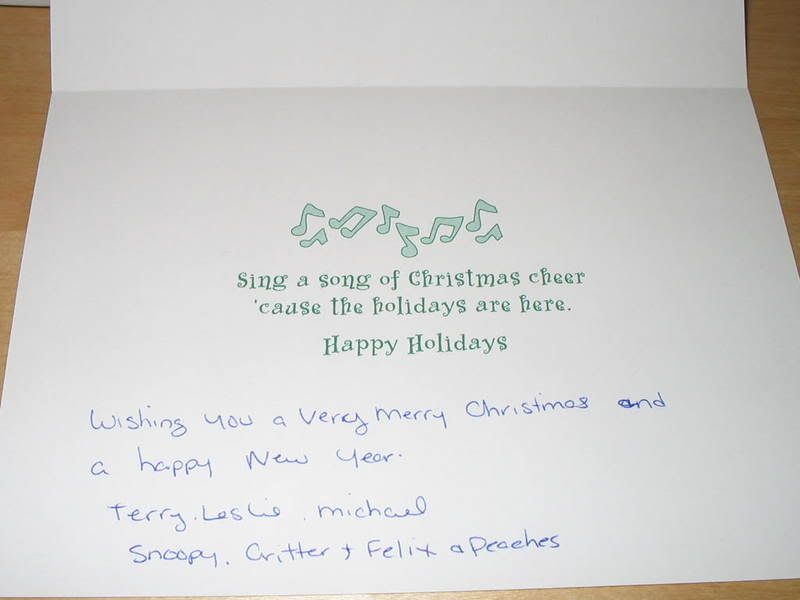 Sing a song of Christmas cheer
'cause the holidays are here.
Happy Holidays
Wishing you a very merry Christmas and
a happy New Year.
Terry, Leslie, michael
Snoopy, Critter + Felix & Peaches